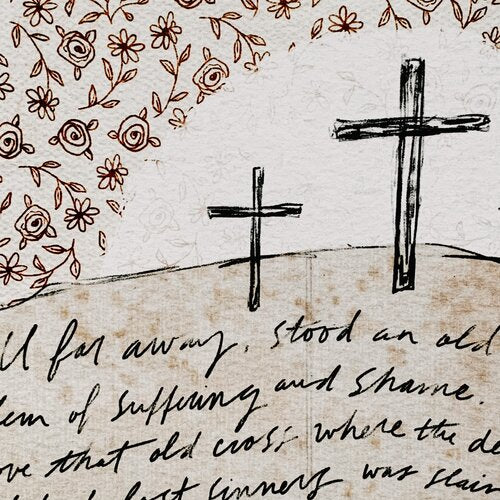 ll far away, stood an old
lem of suffering and shame.
ove that old cross where the de
lost sinners was slain